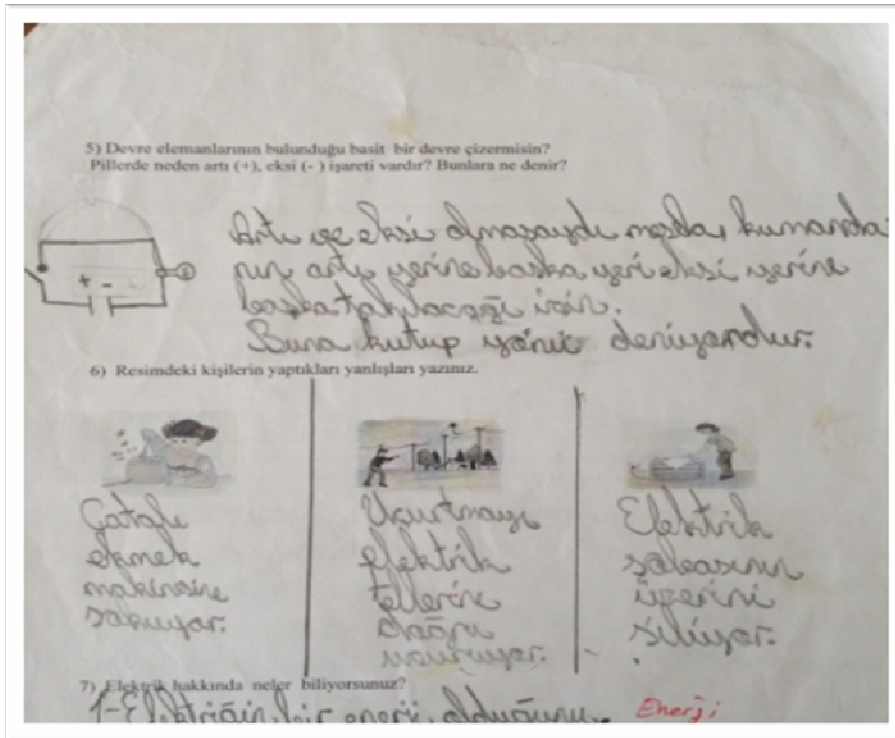 5) Devre elemanlarının bulunduğu basit bir devre çizermisin?
Pillerde neden artı (+), eksi (-) işareti vardır? Bunlara ne denir?
+ -
Artı ve eksi olmasaydı mesela, kumanda
nın artı yerine başka yeri eksi yerine
başka takılacağı için.
Buna kutup yönü deniyordur.
6) Resimdeki kişilerin yaptıkları yanlışları yazınız.
Çatalı
ekmek
makinesine
sokuyor.
Uçurtmayı
elektrik
tellerine
doğru
uçuruyor.
Elektrik
sobasının
üzerini
siliyor.
7) Elektrik hakkında neler biliyorsunuz?
1-Elektriğin bir enerji olduğunu.
Enerji